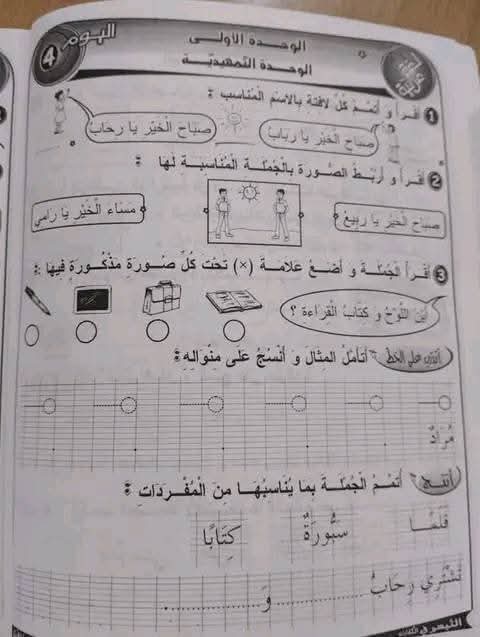 اليوم 4
الوحدة الأولى
الوحدة التمهيدية
لغة عربية
1 أَقْرَأُ وَ أُتَمِّمُ كُلَّ لَافِتَةٍ بِالاسْمِ الْمُنَاسِبِ :
صَبَاحَ الْخَيْرِ يَا رَبَابُ
صَبَاحَ الْخَيْرِ يَا رِحَابُ
2 أَقْرَأُ وَ أَرْبِطُ الصُّورَةَ بِالْجُمْلَةِ الْمُنَاسِبَةِ لَهَا :
صَبَاحَ الْخَيْرِ يَا رَبِيعُ
مَسَاءَ الْخَيْرِ يَا رَامِي
3 أَقْرَأُ الْجُمْلَةَ وَ أَضَعُ عَلَامَةَ (×) تَحْتَ كُلِّ صُورَةٍ مَذْكُورَةٍ فِيهَا :
أَيْنَ اللَّوْحُ وَ كِتَابُ الْقِرَاءَةِ ؟
أتدرب على الخط
أَتَأَمَّلُ الْمِثَالَ وَ أَنْسُجُ عَلَى مِنْوَالِهِ :
مُرَادٌ
أنتج
أُتَمِّمُ الْجُمْلَةَ بِمَا يُنَاسِبُهَا مِنَ الْمُفْرَدَاتِ :
قَلَمًا
سَبُّورَةٌ
كِتَابًا
تَشْتَرِي رِحَابُ .................. وَ ..................